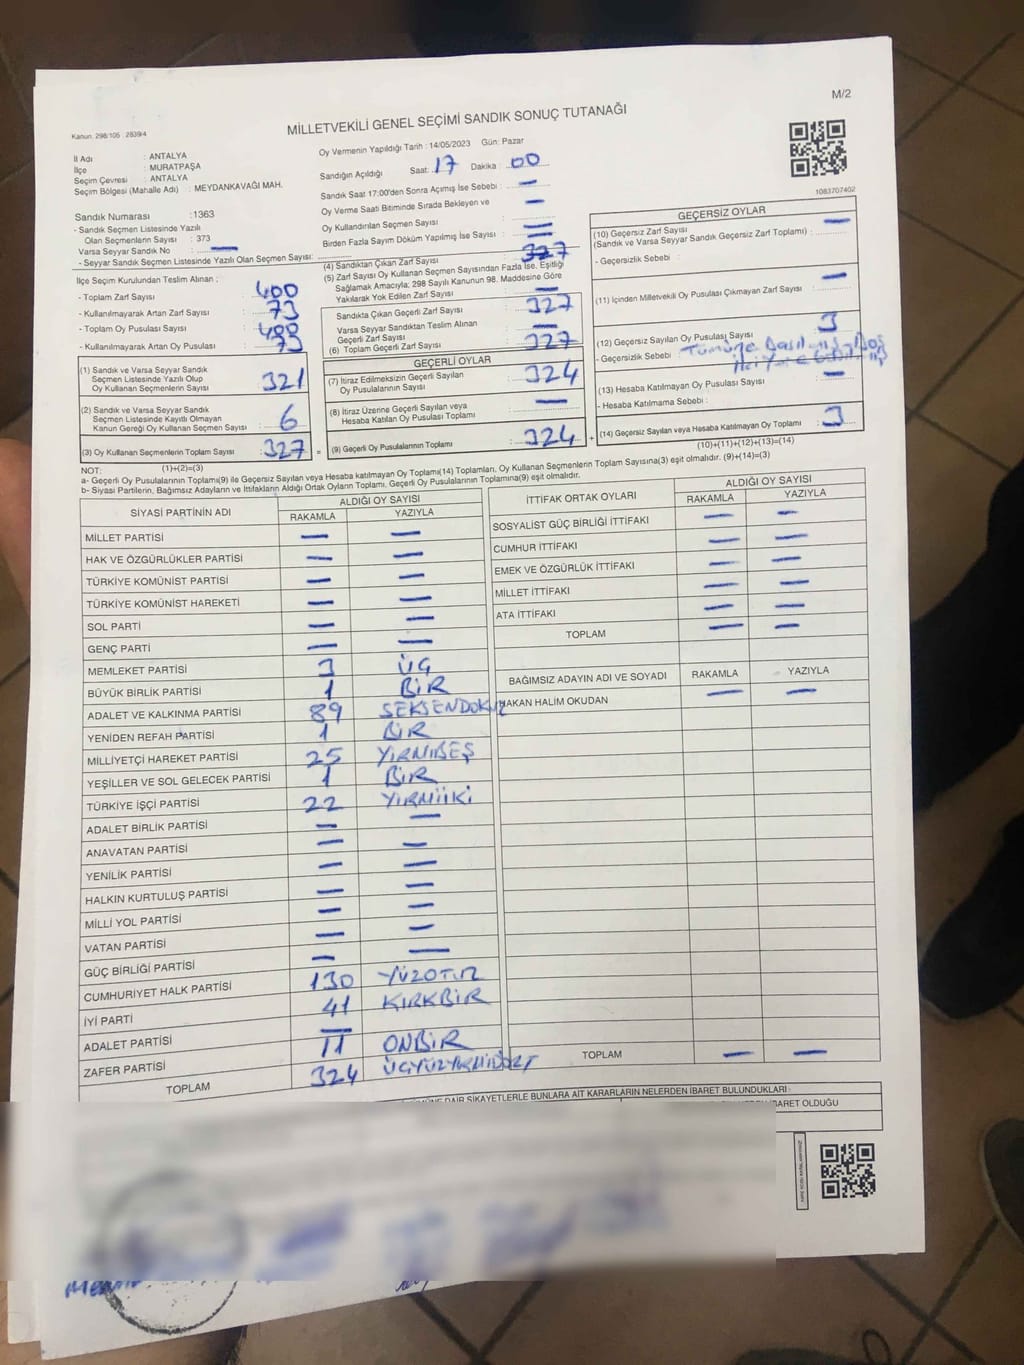 M/2
Kanun. 298/105 . 2839/4
MİLLETVEKİLİ GENEL SEÇİMİ SANDIK SONUÇ TUTANAĞI
İl Adı : ANTALYA
İlçe : MURATPAŞA
Seçim Çevresi : ANTALYA
Seçim Bölgesi (Mahalle Adı) : MEYDANKAVAĞI MAH.
Sandık Numarası :1363
- Sandık Seçmen Listesinde Yazılı
Olan Seçmenlerin Sayısı : 373
Varsa Seyyar Sandık No : —
- Seyyar Sandık Seçmen Listesinde Yazılı Olan Seçmen Sayısı:
Oy Vermenin Yapıldığı Tarih : 14/05/2023 Gün: Pazar
Sandığın Açıldığı Saat: 17 Dakika : 00
Sandık Saat 17:00'den Sonra Açımış İse Sebebi : —
Oy Verme Saati Bitiminde Sırada Bekleyen ve —
Oy Kullandırılan Seçmen Sayısı
Birden Fazla Sayım Döküm Yapılmış İse Sayısı : —
1083707402
İlçe Seçim Kurulundan Teslim Alınan ;
- Toplam Zarf Sayısı : 400
- Kullanılmayarak Artan Zarf Sayısı : 73
- Toplam Oy Pusulası Sayısı :
- Kullanılmayarak Artan Oy Pusulası : 73
(1) Sandık ve Varsa Seyyar Sandık
Seçmen Listesinde Yazılı Olup
Oy Kullanan Seçmenlerin Sayısı : 321
(2) Sandık ve Varsa Seyyar Sandık
Seçmen Listesinde Kayıtlı Olmayan
Kanun Gereği Oy Kullanan Seçmen Sayısı : 6
(3) Oy Kullanan Seçmenlerin Toplam Sayısı : 327
(4) Sandıktan Çıkan Zarf Sayısı : 327
(5) Zarf Sayısı Oy Kullanan Seçmen Sayısından Fazla İse, Eşitliği
Sağlamak Amacıyla, 298 Sayılı Kanunun 98. Maddesine Göre
Yakılarak Yok Edilen Zarf Sayısı : —
Sandıkta Çıkan Geçerli Zarf Sayısı : 327
Varsa Seyyar Sandıktan Teslim Alınan
Geçerli Zarf Sayısı : —
(6) Toplam Geçerli Zarf Sayısı : 327
GEÇERLİ OYLAR
(7) İtiraz Edilmeksizin Geçerli Sayılan
Oy Pusulalarının Sayısı : 324
(8) İtiraz Üzerine Geçerli Sayılan veya
Hesaba Katılan Oy Pusulası Toplamı : —
= (9) Geçerli Oy Pusulalarının Toplamı : 324 +
GEÇERSİZ OYLAR
(10) Geçersiz Zarf Sayısı —
(Sandık ve Varsa Seyyar Sandık Geçersiz Zarf Toplamı) :
- Geçersizlik Sebebi :
(11) İçinden Milletvekili Oy Pusulası Çıkmayan Zarf Sayısı : —
(12) Geçersiz Sayılan Oy Pusulası Sayısı : 3
- Geçersizlik Sebebi :
(13) Hesaba Katılmayan Oy Pusulası Sayısı : —
- Hesaba Katılmama Sebebi :
(14) Geçersiz Sayılan veya Hesaba Katılmayan Oy Toplamı : 3
(1)+(2)=(3)
(10)+(11)+(12)+(13)=(14)
NOT:
a- Geçerli Oy Pusulalarının Toplamı(9) ile Geçersiz Sayılan veya Hesaba katılmayan Oy Toplamı(14) Toplamları, Oy Kullanan Seçmenlerin Toplam Sayısına(3) eşit olmalıdır. (9)+(14)=(3)
b- Siyasi Partilerin, Bağımsız Adayların ve İttifakların Aldığı Ortak Oyların Toplamı, Geçerli Oy Pusulalarının Toplamına(9) eşit olmalıdır.
SİYASİ PARTİNİN ADI ALDIĞI OY SAYISI
RAKAMLA YAZIYLA
MİLLET PARTİSİ — —
HAK VE ÖZGÜRLÜKLER PARTİSİ — —
TÜRKİYE KOMÜNİST PARTİSİ — —
TÜRKİYE KOMÜNİST HAREKETİ — —
SOL PARTİ — —
GENÇ PARTİ — —
MEMLEKET PARTİSİ 3 ÜÇ
BÜYÜK BİRLİK PARTİSİ 1 BİR
ADALET VE KALKINMA PARTİSİ 89 SEKSENDOKUZ
YENİDEN REFAH PARTİSİ 1 BİR
MİLLİYETÇİ HAREKET PARTİSİ 25 YİRMİBEŞ
YEŞİLLER VE SOL GELECEK PARTİSİ 1 BİR
TÜRKİYE İŞÇİ PARTİSİ 22 YİRMİİKİ
ADALET BİRLİK PARTİSİ — —
ANAVATAN PARTİSİ — —
YENİLİK PARTİSİ — —
HALKIN KURTULUŞ PARTİSİ — —
MİLLİ YOL PARTİSİ — —
VATAN PARTİSİ — —
GÜÇ BİRLİĞİ PARTİSİ — —
CUMHURİYET HALK PARTİSİ 130 YÜZOTUZ
İYİ PARTİ 41 KIRKBİR
ADALET PARTİSİ —
ZAFER PARTİSİ 11 ONBİR
TOPLAM 324 ÜÇYÜZYİRMİDÖRT
İTTİFAK ORTAK OYLARI ALDIĞI OY SAYISI
RAKAMLA YAZIYLA
SOSYALİST GÜÇ BİRLİĞİ İTTİFAKI — —
CUMHUR İTTİFAKI — —
EMEK VE ÖZGÜRLÜK İTTİFAKI — —
MİLLET İTTİFAKI — —
ATA İTTİFAKI — —
TOPLAM — —
BAĞIMSIZ ADAYIN ADI VE SOYADI RAKAMLA YAZIYLA
HAKAN HALİM OKUDAN — —
TOPLAM — —
DAİR ŞİKAYETLERLE BUNLARA AİT KARARLARIN NELERDEN İBARET BULUNDUKLARI
İBARET OLDUĞU